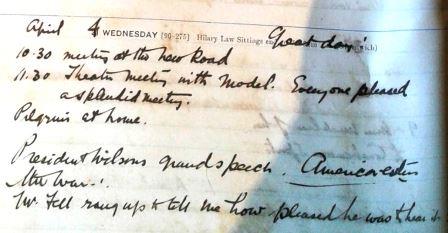 April 4 WEDNESDAY [90-275] Hilary Law Sittings Great day!
10.30 meeting at the New Road
11.30 Theatre meeting with Model. Everyone pleased
a splendid meeting.
Pilgrims at home.
President Wilsons grand speech. America enters
the War!
Mr Fell rang up to tell me how pleased he was to hear it